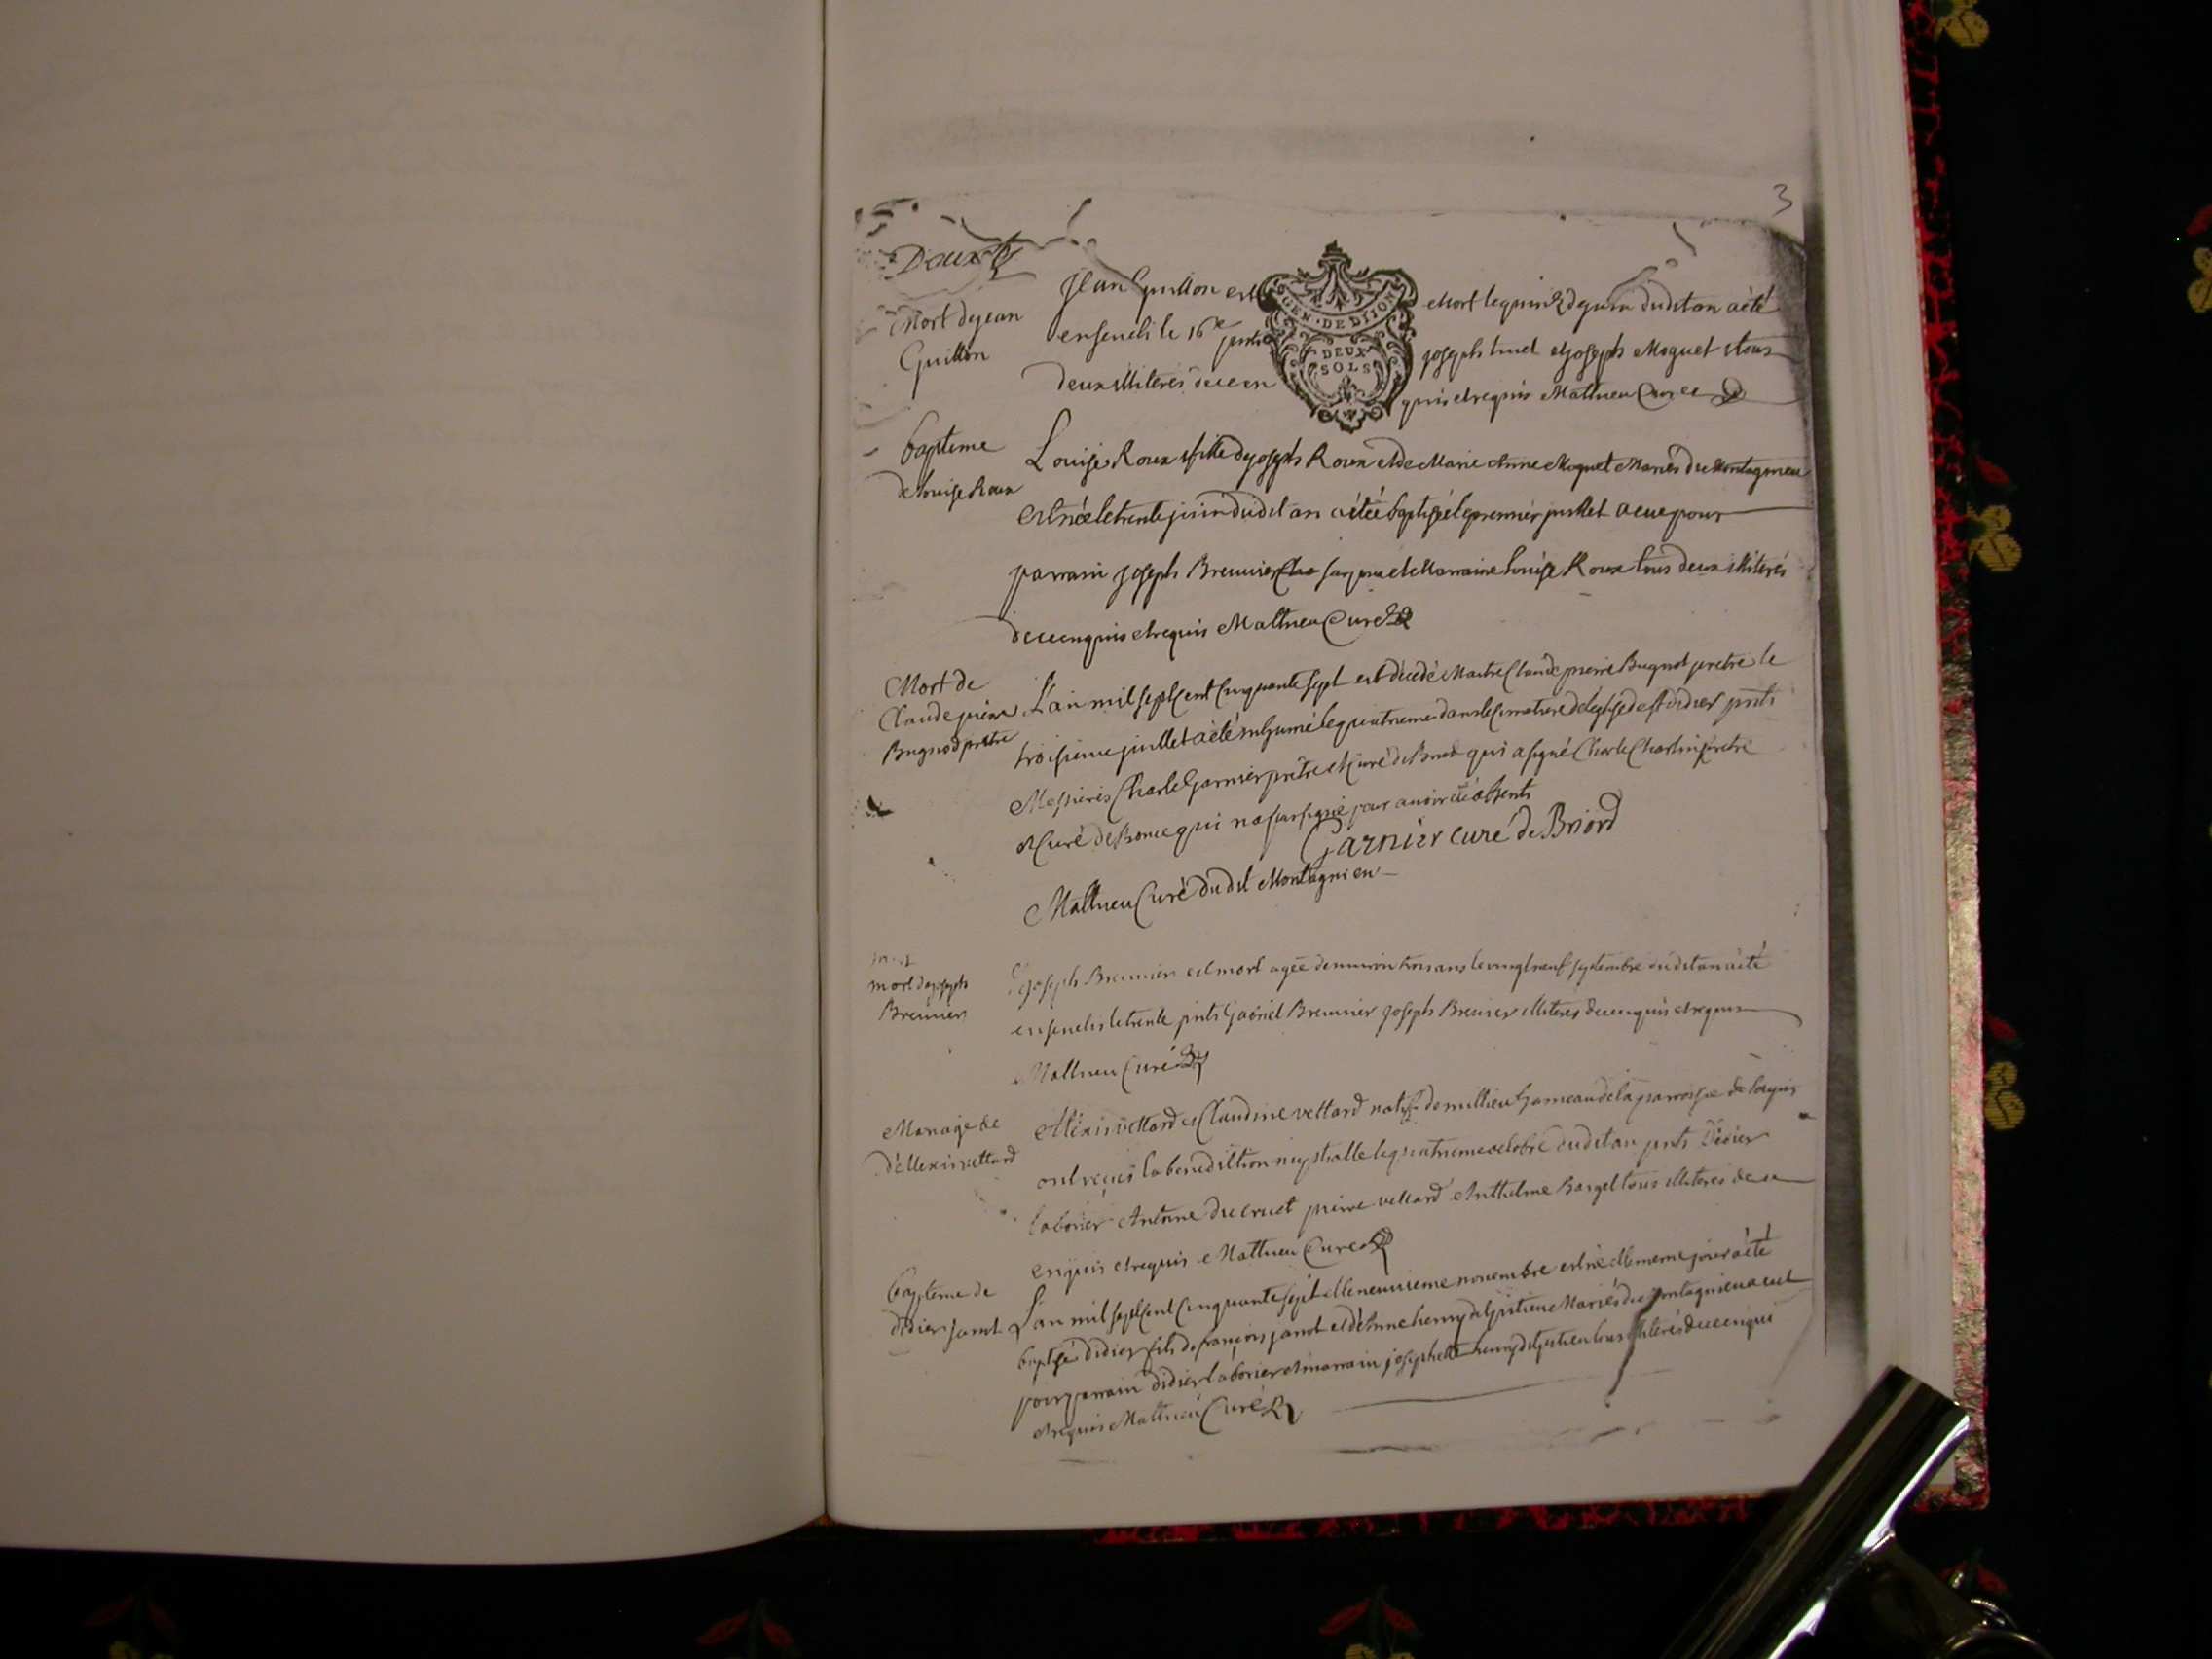 3
Deux
Mort de jean
Guillon
Jean Guillon est mort le quinze de juin dudit an a été
GEN · DE DIJON
DEUX
SOLS
enseveli le 16e joseph et joseph Moquet tous
deux illiteres de ce enquis et requis Mathieu Curé
bapteme
de louise Roux
Louise Roux fille de joseph Roux et de Marie Anne Moquet Mariés du Montagnieu
est née le trente juin dudit an a étée baptisé le premier juillet a eue pour
parrain joseph Breunier et Marraine louise Roux tous deux illiterés
de ce enquis et requis Mathieu Curé
Mort de
Claude pierre
Bugnod pretre
L'an mil sept Cent Cinquante sept est décedé Maitre Claude pierre Bugnod pretre le
troisieme juillet a été inhumé le quatrieme dans le Cimetiere de leglise de st didier pnts
Messieres Charle Garnier prêtre et Curé de Briord qui a signé Charle Charlin pretre
et Curé de qui na pas signé pour avoir été absents
Garnier curé de Briord
Mathieu Curé du dit Montagnieu
mort de joseph
Breunier
joseph Breunier est mort agée denviron trois ans le vingt neuf septembre dudit an a été
ensevelis le trente pnts Gabriel Breunier joseph Breunier illiteres de ce enquis et requis
Mathieu Curé
Mariage de
d'Allexis vettard
Alexis vettard et Claudine vettard natifs de millieu hameau de la paroisse de
ont reçues la benediction nuptialle le quatrieme octobre dudit an pnts Didier
laborier Antoine ducruet pierre vettard Anthelme Barget tous illiteres de ce
enquis et requis Mathieu Curé
bapteme de
didier janot
L'an mil sept Cent Cinquante sept et le neuvieme novembre est né et le meme jour a été
baptisé didier fils de françois janot et de Anne henry Mariés du Montagnieu a eut
pour parrain didier laborier et marrain josephette henry tous illiterés de ce enqui
et requis Mathieu Curé